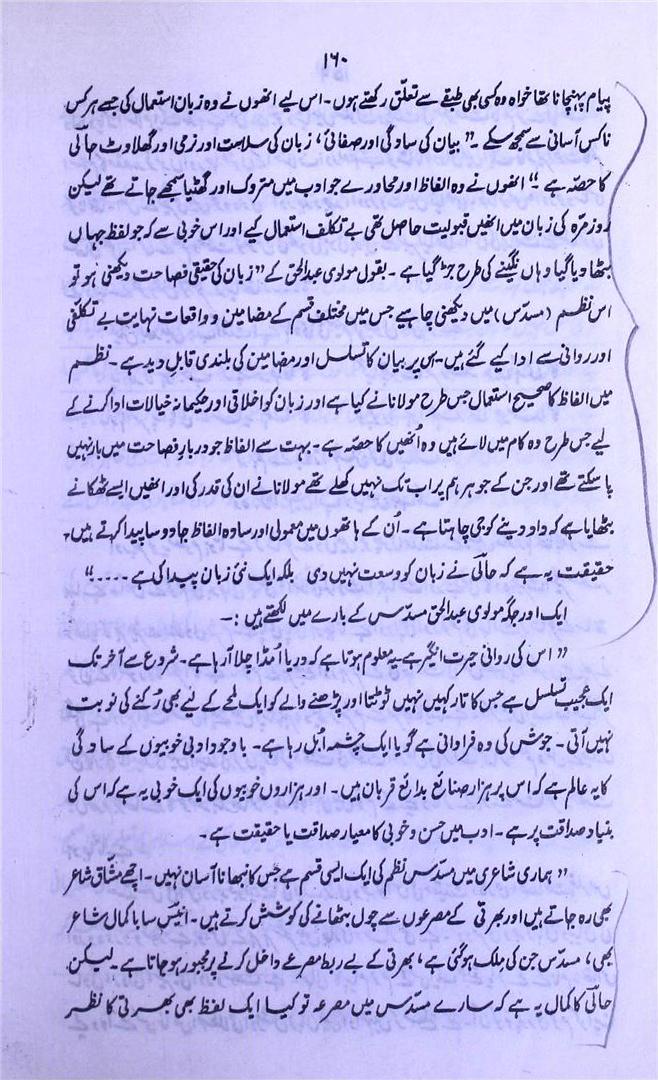 ۱۶۰
پیام پہنچانا تھا خواہ وہ کسی بھی طبقے سے تعلّق رکھتے ہوں۔ اس لیے انھوں نے وہ زبان استعمال کی جسے ہر کس
ناکس آسانی سے سمجھ سکے۔ “بیان کی سادگی اور صفائی، زبان کی سلاست اور نرمی اور گھلاوٹ حالؔی
کا حصّہ ہے۔” انھوں نے وہ الفاظ اور محاورے جو ادب میں متروک اور گھٹیا سمجھے جاتے تھے لیکن
روزمرّہ کی زبان میں انھیں قبولیت حاصل تھی بے تکلّف استعمال کیے اور اس خوبی سے کہ جو لفظ جہاں
بٹھا دیا گیا وہاں نگینے کی طرح جڑ گیا ہے۔ بقول مولوی عبدالحق کے “زبان کی حقیقی فصاحت دیکھنی ہو تو
اس نظم (مسدّس) میں دیکھنی چاہیے جس میں مختلف قسم کے مضامین و واقعات نہایت بے تکلّفی
اور روانی سے ادا کیے گئے ہیں۔ اس پر بیان کا تسلسل اور مضامین کی بلندی قابلِ دید ہے۔ نظم
میں الفاظ کا صحیح استعمال جس طرح مولانا نے کیا ہے اور زبان کو اخلاقی اور حکیمانہ خیالات ادا کرنے کے
لیے جس طرح وہ کام میں لائے ہیں وہ اُنھیں کا حصّہ ہے۔ بہت سے الفاظ جو دربارِ فصاحت میں بار نہیں
پا سکتے تھے اور جن کے جوہر ہم پر اب تک نہیں کھلے تھے مولانا نے ان کی قدر کی اور انھیں ایسے ٹھکانے
بٹھایا ہے کہ داد دینے کو جی چاہتا ہے۔ اُن کے ہاتھوں میں معمولی اور سادہ الفاظ جادو سا پیدا کرتے ہیں۔
حقیقت یہ ہے کہ حالؔی نے زبان کو وسعت نہیں دی بلکہ ایک نئی زبان پیدا کی ہے ....”
ایک اور جگہ مولوی عبدالحق مسدّس کے بارے میں لکھتے ہیں :۔
“اس کی روانی حیرت انگیز ہے یہ معلوم ہوتا ہے کہ دریا اُمڈا چلا آ رہا ہے۔ شروع سے آخر تک
ایک عجیب تسلسل ہے جس کا تار کہیں نہیں ٹوٹتا اور پڑھنے والے کو ایک لمحے کے لیے بھی رُکنے کی نوبت
نہیں آتی۔ جوش کی وہ فراوانی ہے گویا ایک چشمہ اُبل رہا ہے۔ باوجود ادبی خوبیوں کے سادگی
کا یہ عالم ہے کہ اس پر ہزار صنائع بدائع قربان ہیں۔ اور ہزاروں خوبیوں کی ایک خوبی یہ ہے کہ اس کی
بنیاد صداقت پر ہے۔ ادب میں حسن و خوبی کا معیار صداقت یا حقیقت ہے۔
“ہماری شاعری میں مسدّس نظم کی ایک ایسی قسم ہے جس کا نبھانا آسان نہیں۔ اچھے مشّاق شاعر
بھی رہ جاتے ہیں اور بھرتی کے مصرعوں سے چول بٹھانے کی کوشش کرتے ہیں۔ انیسؔ سا باکمال شاعر
بھی، مسدّس جن کی مِلک ہو گئی ہے، بھرتی کے بے ربط مصرعے داخل کرنے پر مجبور ہو جاتا ہے۔ لیکن
حالؔی کا کمال یہ ہے کہ سارے مسدّس میں مصرعہ تو کیا ایک لفظ بھی بھرتی کا نظر